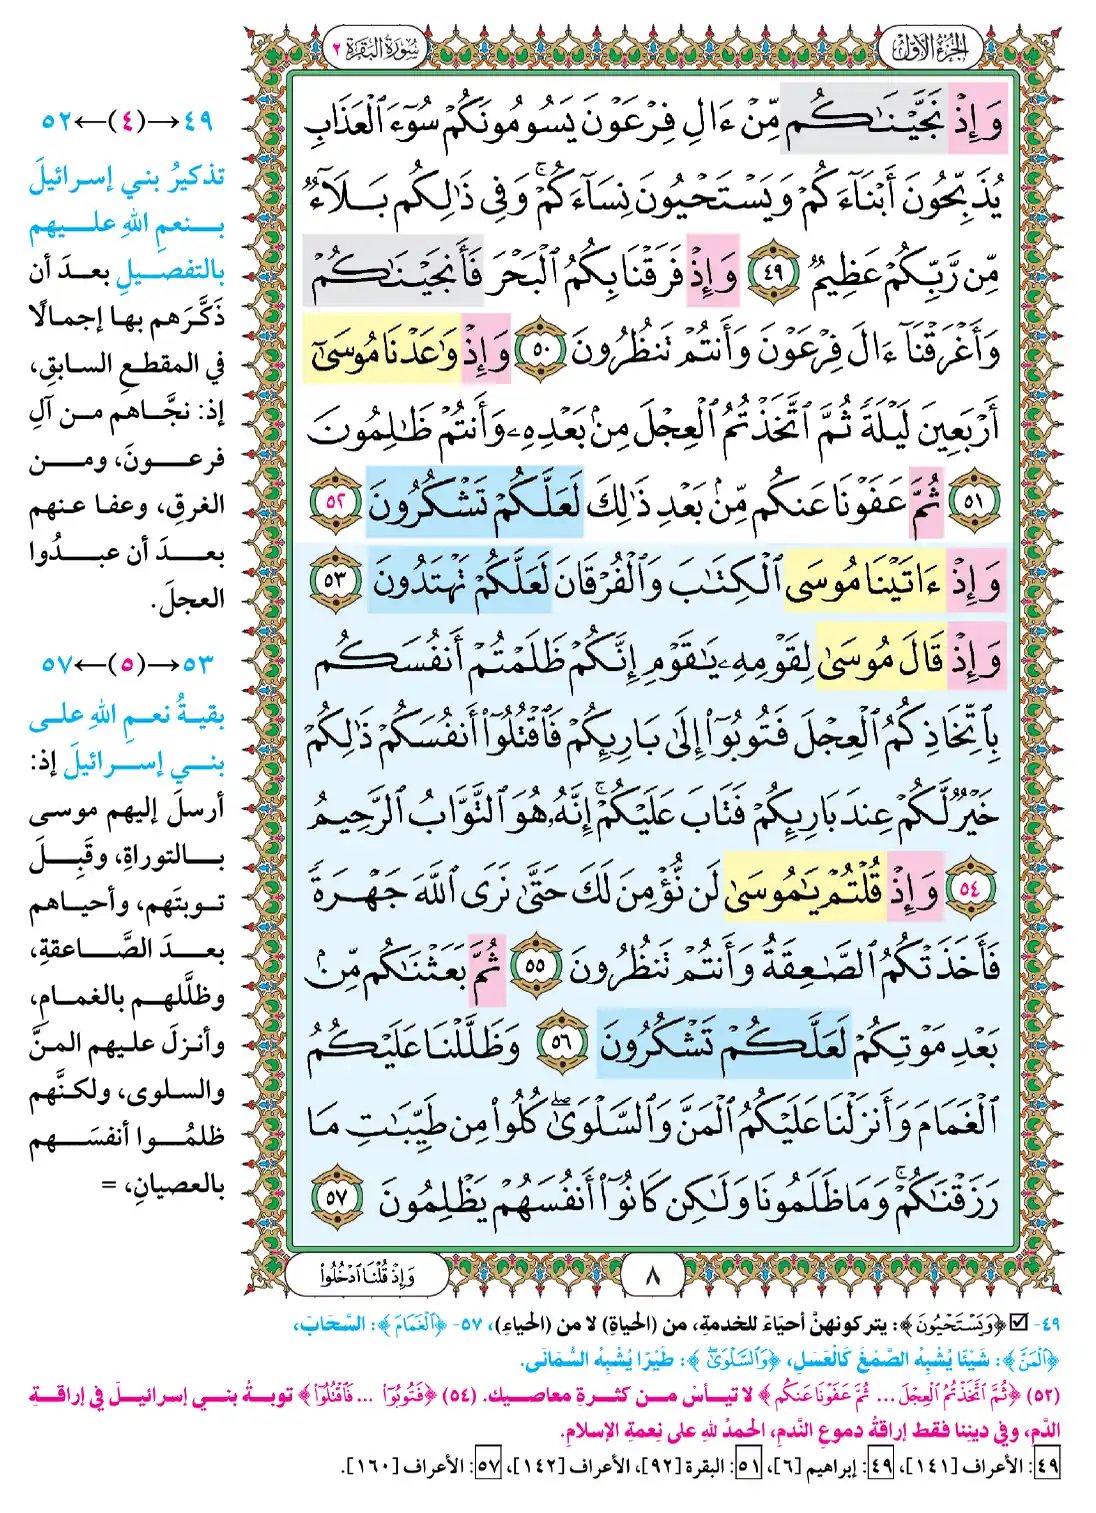 الجزء الأول
سورة البقرة ٢
وَإِذْ نَجَّيْنَٰكُم مِّنْ ءَالِ فِرْعَوْنَ يَسُومُونَكُمْ سُوٓءَ ٱلْعَذَابِ
يُذَبِّحُونَ أَبْنَآءَكُمْ وَيَسْتَحْيُونَ نِسَآءَكُمْ ۚ وَفِى ذَٰلِكُم بَلَآءٌ
مِّن رَّبِّكُمْ عَظِيمٌ ٤٩ وَإِذْ فَرَقْنَا بِكُمُ ٱلْبَحْرَ فَأَنجَيْنَٰكُمْ
وَأَغْرَقْنَآ ءَالَ فِرْعَوْنَ وَأَنتُمْ تَنظُرُونَ ٥٠ وَإِذْ وَٰعَدْنَا مُوسَىٰٓ
أَرْبَعِينَ لَيْلَةً ثُمَّ ٱتَّخَذْتُمُ ٱلْعِجْلَ مِنۢ بَعْدِهِۦ وَأَنتُمْ ظَٰلِمُونَ
٥١ ثُمَّ عَفَوْنَا عَنكُم مِّنۢ بَعْدِ ذَٰلِكَ لَعَلَّكُمْ تَشْكُرُونَ ٥٢
وَإِذْ ءَاتَيْنَا مُوسَى ٱلْكِتَٰبَ وَٱلْفُرْقَانَ لَعَلَّكُمْ تَهْتَدُونَ ٥٣
وَإِذْ قَالَ مُوسَىٰ لِقَوْمِهِۦ يَٰقَوْمِ إِنَّكُمْ ظَلَمْتُمْ أَنفُسَكُم
بِٱتِّخَاذِكُمُ ٱلْعِجْلَ فَتُوبُوٓا۟ إِلَىٰ بَارِئِكُمْ فَٱقْتُلُوٓا۟ أَنفُسَكُمْ ذَٰلِكُمْ
خَيْرٌ لَّكُمْ عِندَ بَارِئِكُمْ فَتَابَ عَلَيْكُمْ ۚ إِنَّهُۥ هُوَ ٱلتَّوَّابُ ٱلرَّحِيمُ
٥٤ وَإِذْ قُلْتُمْ يَٰمُوسَىٰ لَن نُّؤْمِنَ لَكَ حَتَّىٰ نَرَى ٱللَّهَ جَهْرَةً
فَأَخَذَتْكُمُ ٱلصَّٰعِقَةُ وَأَنتُمْ تَنظُرُونَ ٥٥ ثُمَّ بَعَثْنَٰكُم مِّنۢ
بَعْدِ مَوْتِكُمْ لَعَلَّكُمْ تَشْكُرُونَ ٥٦ وَظَلَّلْنَا عَلَيْكُمُ
ٱلْغَمَامَ وَأَنزَلْنَا عَلَيْكُمُ ٱلْمَنَّ وَٱلسَّلْوَىٰ ۖ كُلُوا۟ مِن طَيِّبَٰتِ مَا
رَزَقْنَٰكُمْ ۖ وَمَا ظَلَمُونَا وَلَٰكِن كَانُوٓا۟ أَنفُسَهُمْ يَظْلِمُونَ ٥٧
٨
وَإِذْ قُلْنَا ٱدْخُلُوا۟
٤٩→(٤)←٥٢
تذكيرُ بني إسرائيلَ
بنعمِ اللهِ عليهم
بالتفصيلِ بعدَ أن
ذَكَّرَهم بها إجمالًا
في المقطعِ السابقِ،
إذ: نجَّاهم من آلِ
فرعونَ، ومن
الغرقِ، وعفا عنهم
بعدَ أن عبدُوا
العجلَ.
٥٣→(٥)←٥٧
بقيةُ نعمِ اللهِ على
بني إسرائيلَ إذ:
أرسلَ إليهم موسى
بالتوراةِ، وقَبِلَ
توبتَهم، وأحياهم
بعدَ الصَّاعقةِ،
وظلَّلهم بالغمامِ،
وأنزلَ عليهم المنَّ
والسلوى، ولكنَّهم
ظلمُوا أنفسَهم
بالعصيانِ، =
٤٩- ☑ ﴿وَيَسْتَحْيُونَ﴾: يتركونهنَّ أحياءً للخدمةِ، من (الحياةِ) لا من (الحياءِ)، ٥٧- ﴿ٱلْغَمَامَ﴾: السَّحَابَ،
﴿ٱلْمَنَّ﴾: شَيْئًا يُشْبِهُ الصَّمْغَ كَالْعَسَلِ، ﴿وَٱلسَّلْوَىٰ ۖ﴾: طَيْرًا يُشْبِهُ السُّمَانَى.
(٥٢) ﴿ثُمَّ ٱتَّخَذْتُمُ ٱلْعِجْلَ ... ثُمَّ عَفَوْنَا عَنكُم﴾ لا تيأسْ من كثرةِ معاصيك. (٥٤) ﴿فَتُوبُوٓا۟ ... فَٱقْتُلُوٓا۟﴾ توبةُ بني إسرائيلَ في إراقةِ
الدَّمِ، وفي دينِنا فقط إراقةُ دموعِ النَّدمِ، الحمدُ للهِ على نِعمةِ الإسلامِ.
٤٩: الأعراف [١٤١]، ٤٩: إبراهيم [٦]، ٥١: البقرة [٩٢]، الأعراف [١٤٢]، ٥٧: الأعراف [١٦٠].